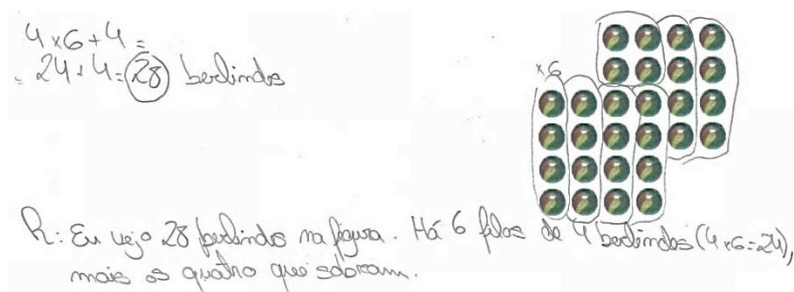 4×6+4=
= 24+4=28 berlindes
×6
R: Eu vejo 28 berlindes na figura. Há 6 filas de 4 berlindes (4×6=24),
mais os quatro que sobram.